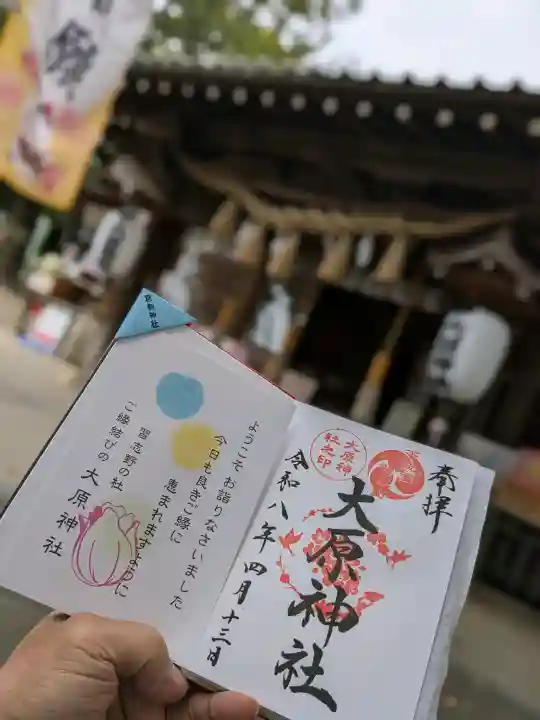 奉拝
大原神社
令和八年四月十三日
大原神
社之印
ようこそお詣りなさいました
今日も良きご縁に
恵まれますように
習志野の杜
ご縁結びの 大原神社